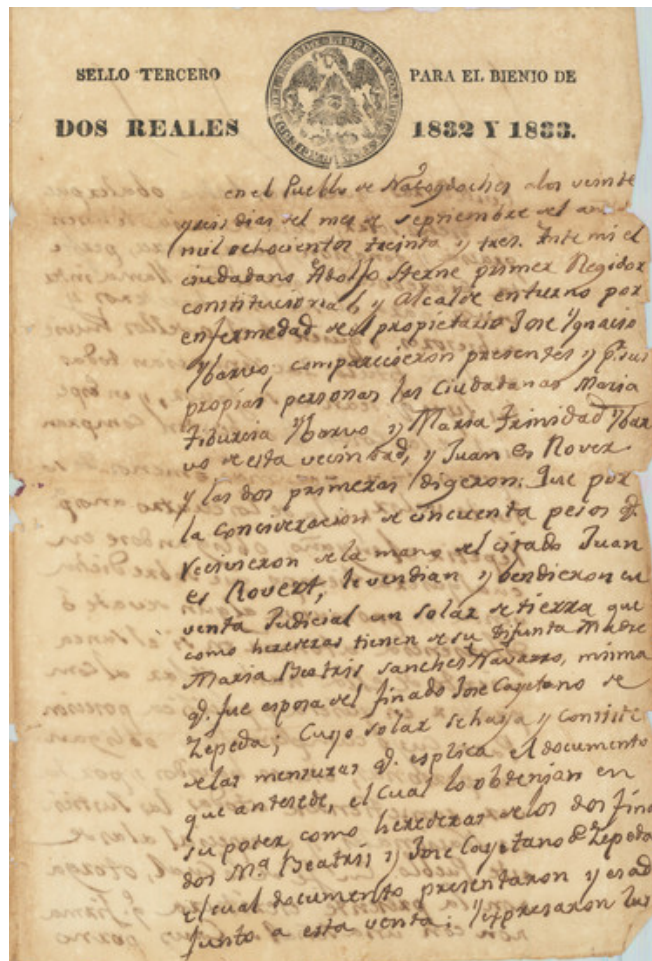 SELLO TERCERO
PARA EL BIENIO DE
DOS REALES
1832 Y 1833.
en el Pueblo de Nacogdoches a los veinte
y seis dias del mes de Septiembre del año
mil ochocientos treinta y tres. Ante mi el
ciudadano Adolfo Sterne primer Regidor
constitucional, y Alcalde en turno por
enfermedad del propietario Jose Ygnacio
Ybarvo, comparecieron presentes y p.r sus
propias personas las Ciudadanas Maria
Tiburcia Ybarvo y Maria Trinidad Ybar
vo de esta vecindad, y Juan Es Rover
y las dos primeras digeron: Que por
la concideracion de cincuenta pesos q.e
recivieron de la mano del citado Juan
es Rovert, le vendian y bendieron en
venta Judicial un solar de tierra que
como herederas tienen de su difunta Madre
Maria Beatris Sanches Navarro, misma
q.e fue esposa del finado Jose Cayetano de
Zepeda; Cuyo solar se haya y Conciste
de las mensuras q.e esplica el documento
que antesede, el Cual lo obtenian en
su poder como herederas de los dos fina
dos M.a Beatris y Jose Cayetano de Zepeda
el cual documento presentaron y es ad
junto a esta venta; Yespresaron las